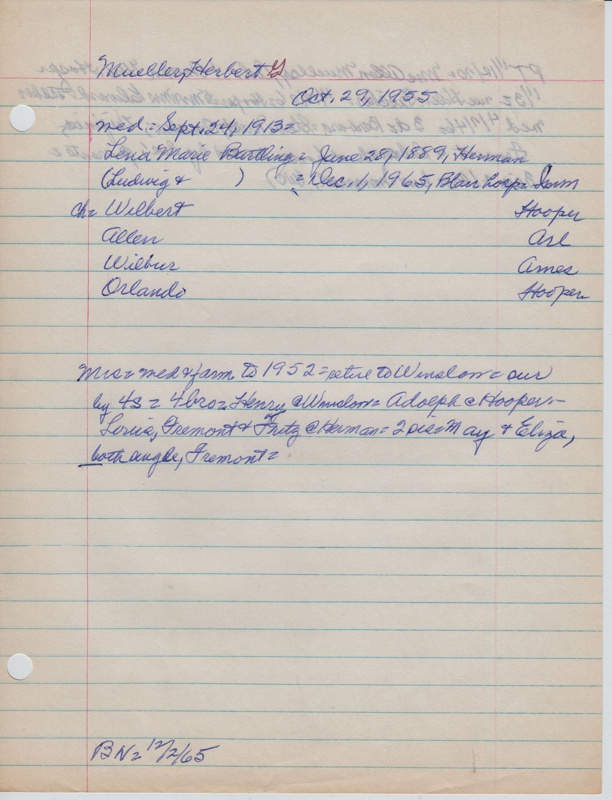 Mueller, Herbert G
Oct. 29, 1955
med = Sept. 24, 1913 =
Lena Marie Bartling = June 28, 1889, Herman
(Ludwig & ) = Dec. 1, 1965, Blair hosp =
ch = Wilbert Hooper
Allen Arl
Wilbur Ames
Orlando Hooper
Mrs = med & farm to 1952 = retire to Winslow = sur
by 4s = 4 bro = Henry @ Winslow = Adolph @ Hooper =
Louis, Fremont & Fritz @ Herman = 2 sis = May & Eliza,
both Fremont =
BN = 12/2/65